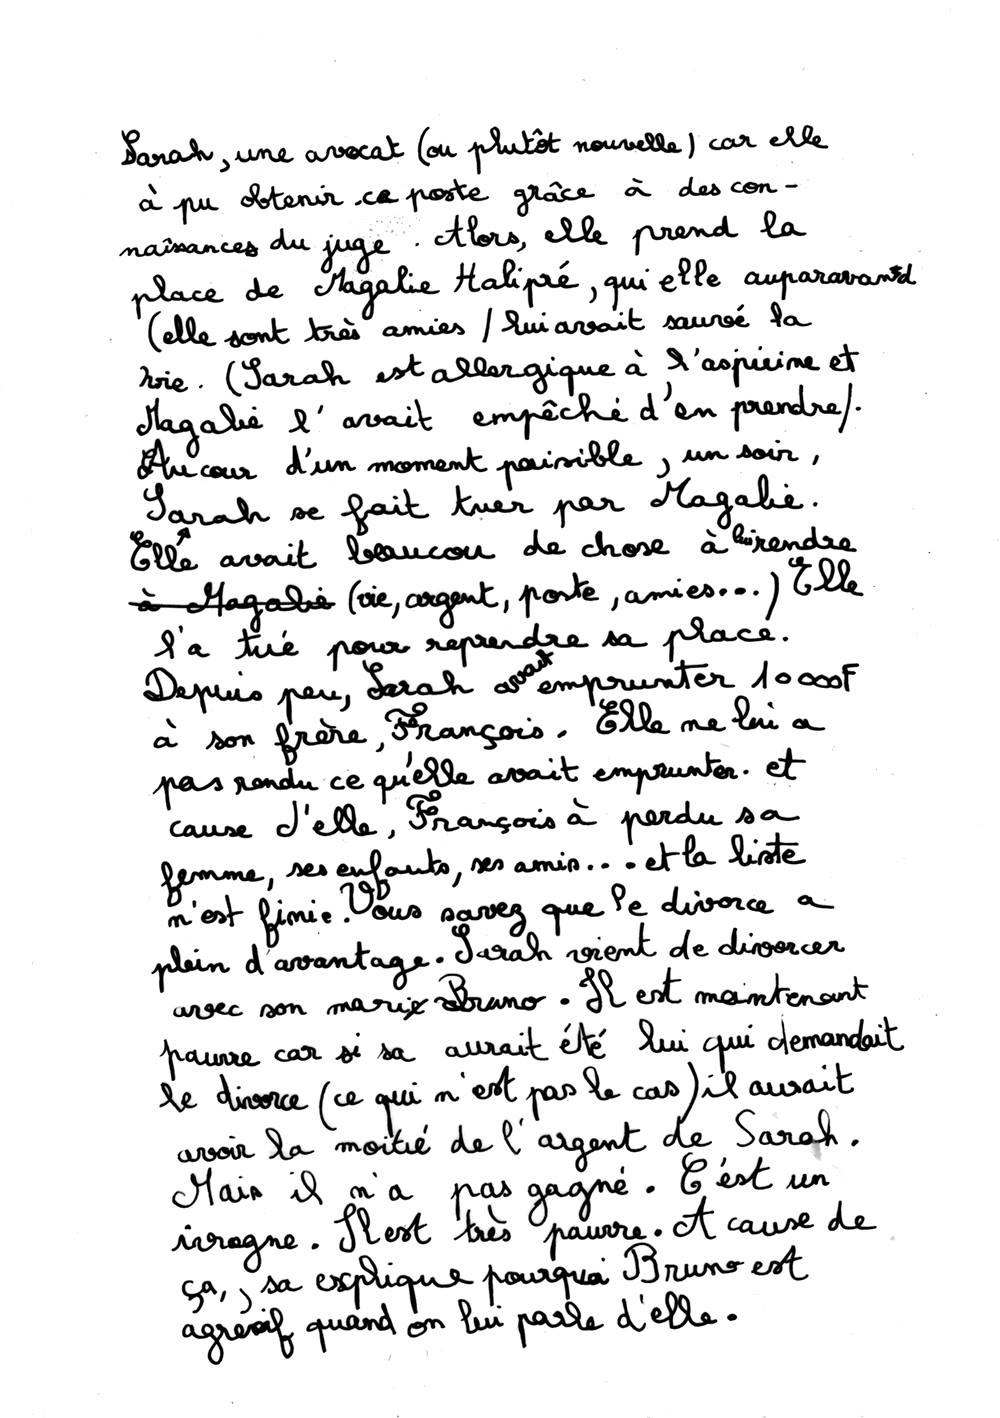 Sarah, une avocat (ou plutôt nouvelle) car elle
à pu obtenir ce poste grâce à des con-
naîssances du juge. Alors, elle prend la
place de Magalie Halipré, qui elle auparavant
(elle sont très amies) lui avait sauvé la
vie. (Sarah est allergique à l'aspirine et
Magalie l'avait empêché d'en prendre).
Au cour d'un moment paisible, un soir,
Sarah se fait tuer par Magalie.
Elle avait beaucou de chose à lui rendre
à Magalie (vie, argent, poste, amies...) Elle
l'a tué pour reprendre sa place.
Depuis peu, Sarah avait emprunter 10000F
à son frère, François. Elle ne lui a
pas rendu ce qu'elle avait emprunter. et
cause d'elle, François à perdu sa
femme, ses enfants, ses amis... et la liste
n'est finie. Vous savez que le divorce a
plein d'avantage. Sarah vient de divorcer
avec son mari Bruno. Il est maintenant
pauvre car si sa aurait été lui qui demandait
le divorce (ce qui n'est pas le cas) il aurait
avoir la moitié de l'argent de Sarah.
Mais il n'a pas gagné. C'est un
ivrogne. Il est très pauvre. A cause de
ça,, sa explique pourquoi Bruno est
agresif quand on lui parle d'elle.